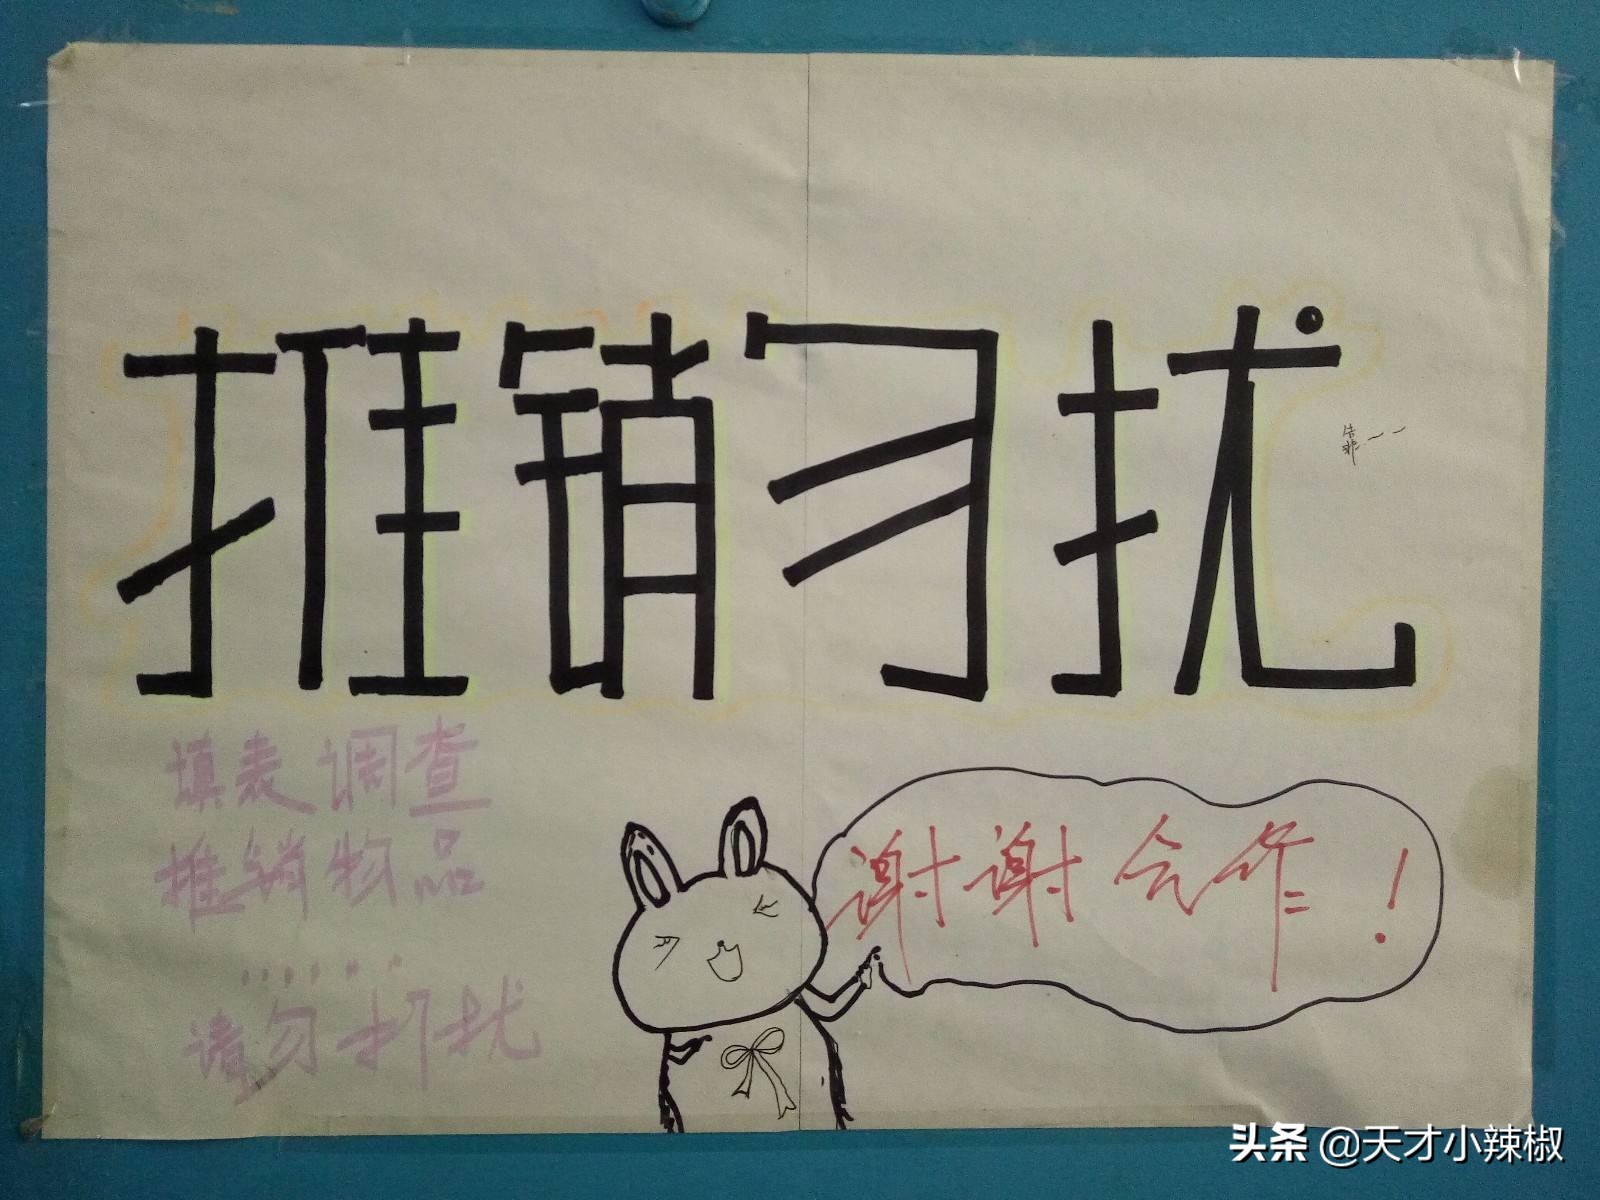 推销勿扰
靠~~
填表调查
推销物品
……
请勿打扰
谢谢合作!
头条 @天才小辣椒